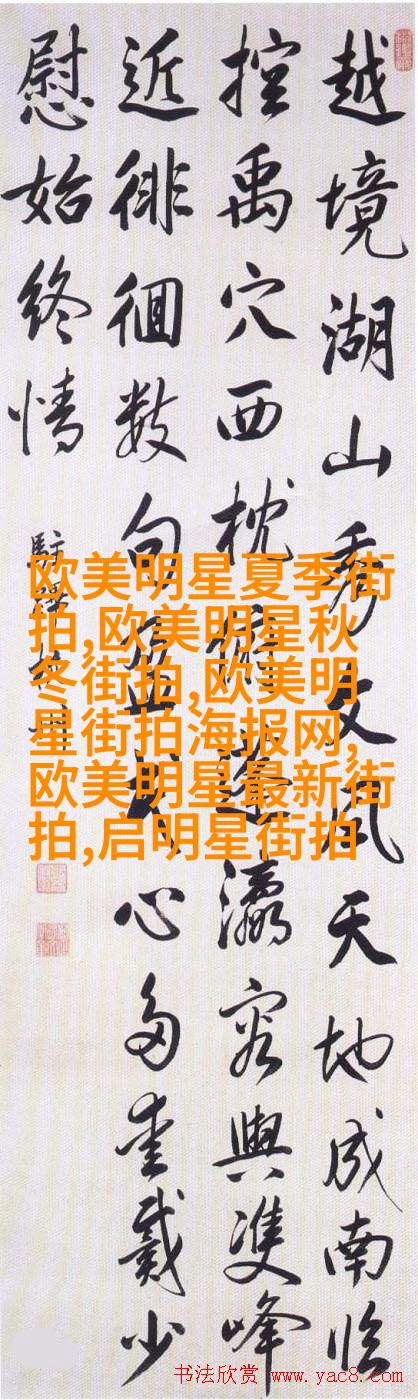 越境湖山秀文風天地成南临
控禹穴西枕瀛容與雙峰
近徘徊数句心多愛戴少
慰始終情
欧美明星夏季街
拍,欧美明星秋
冬街拍,欧美明
星街拍海报网,
欧美明星最新街
拍,启明星街拍
书法欣赏 www.yac8.com